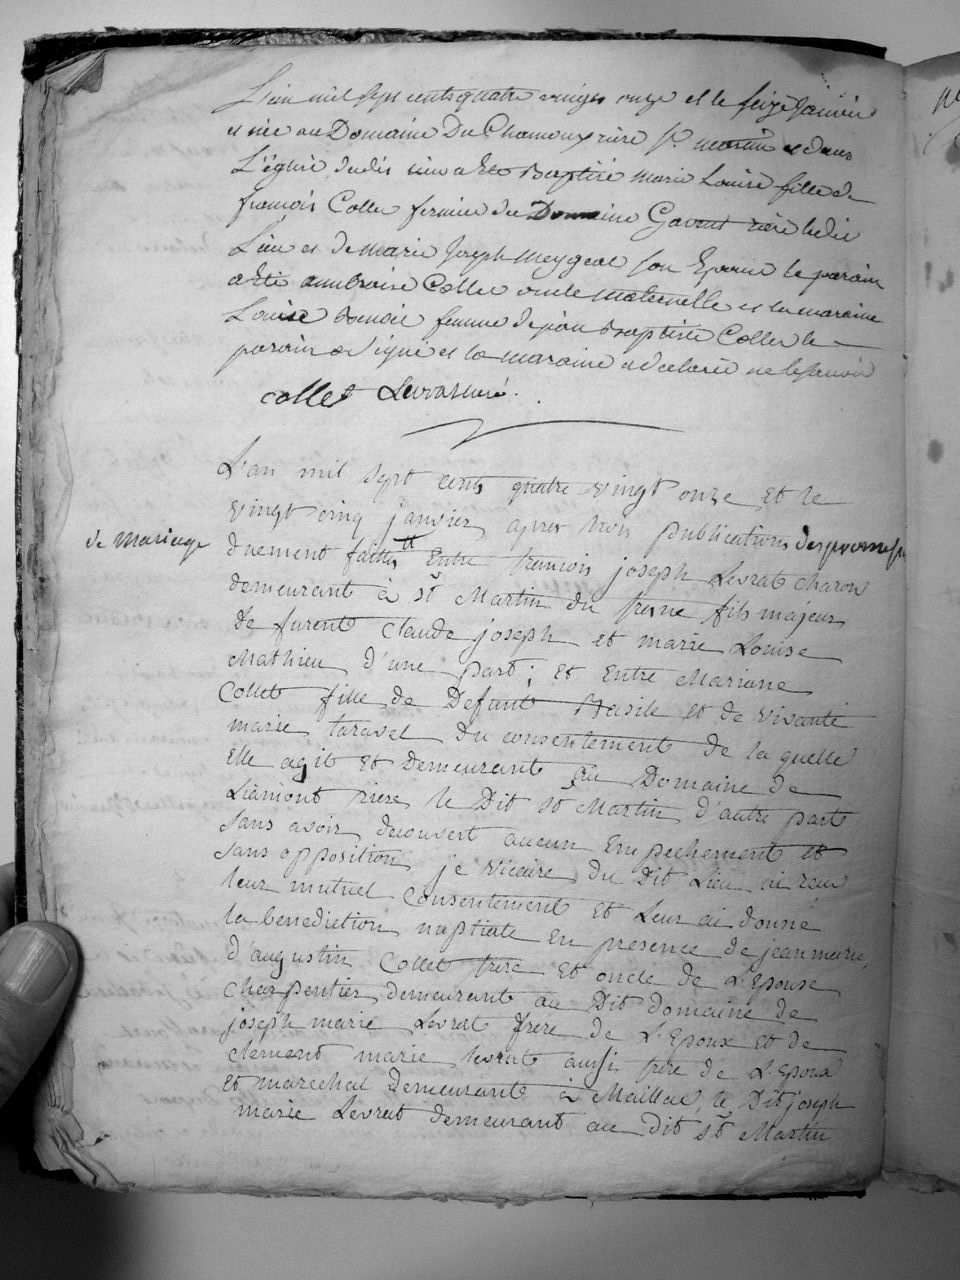 L'an mil sept cents quatre vingts onze et le seize Janvier
est née au Domaine Du Chamoux rière St. martin et dans
L'église dudit lieu a été Baptisé Marie Louise fille de
francois Collet fermier du Domaine rière ledit
Lieu et de marie Joseph son Epouse le parain
a été ambroise Collet oncle maternelle et la maraine
Louise Benoit femme de jean Baptiste Collet le
parain a signé et la maraine a declarée ne le savoir
collet
L'an mil sept cents quatre vingt onze Et le
vingt cinq janvier apres trois publications des promesses
de mariage
duement faittes Entre francois joseph Levrat charon
demeurant à St Martin du fresne fils majeur
de furent claude joseph et marie Louise
Mathieu d'une part; Et Entre Mariane
Collet fille de Defunt Basile et de vivante
marie taravel du consentement de la quelle
Elle agit Et demeurante au Domaine de
Liamont riere le Dit St Martin d'autre part
sans avoir decouvert aucun Empechement et
sans opposition, je vicaire du Dit Lieu ai recu
leur mutuel consentement Et Leur ai donné
la benediction nuptiale En presence de jean marie,
d'augustin Collet frere Et oncle de L'Epouse
charpentier demeurants au Dit domaine de
joseph marie Levrat frere de L'Epoux et de
clement marie levrat aussi frere de L'Epoux
Et marechal demeurante à Maillac, le Dit joseph
marie Levrat demeurant au dit St Martin